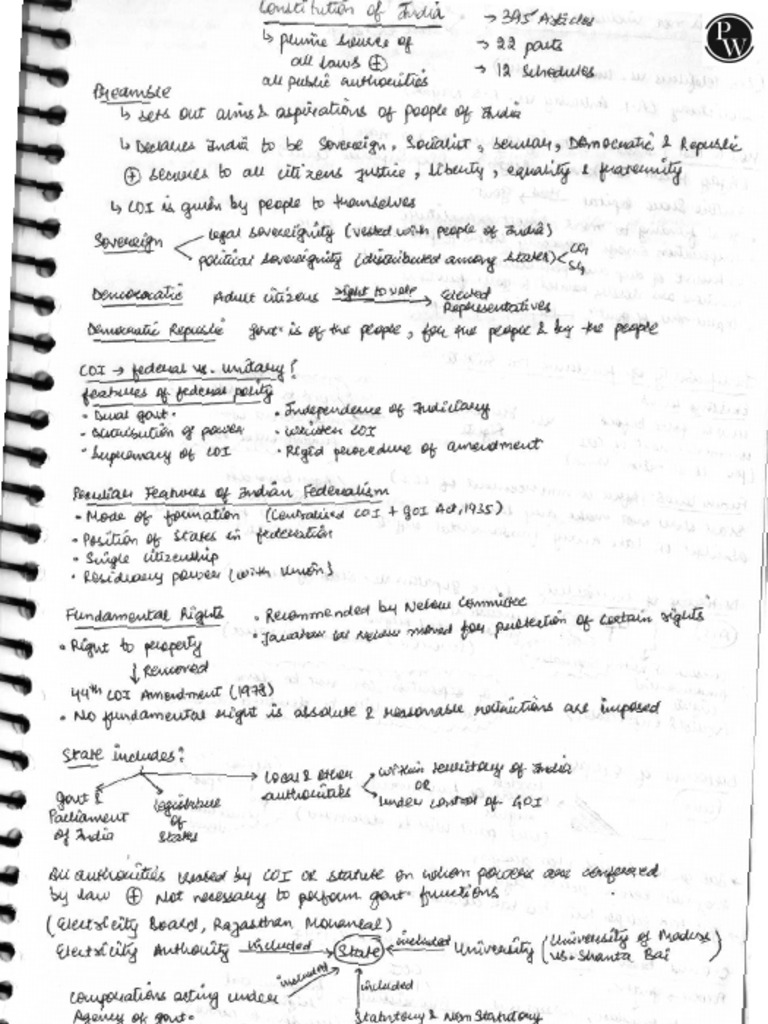 Constitution of India
→ 395 Articles
↳ prime source of
all laws ⊕
all public authorities
→ 22 parts
→ 12 schedules
PW
Preamble
↳ sets out aims & aspirations of people of India
↳ Declares India to be Sovereign, Socialist, secular, Democratic & Republic
⊕ secures to all citizens justice, liberty, equality & fraternity
↳ COI is given by people to themselves
Sovereign
legal sovereignty (vested with people of India)
political sovereignty (distributed among states) < CG, SG
Democratic Adult citizens right to vote → Elected Representatives
Democratic Republic govt. is of the people, for the people & by the people
COI → federal vs. unitary?
features of federal polity
• Dual govt. • Independence of Judiciary
• distribution of power • written COI
• Supremacy of COI • Rigid procedure of amendment
Peculiar Features of Indian Federalism
• Mode of formation (Centralised COI + GOI Act, 1935)
• Position of States in federation
• Single citizenship
• Residuary power (with Union)
Fundamental Rights • Recommended by Nehru Committee
• Jawahar lal Nehru moved for protection of certain rights
• Right to property
↓ Removed
44th COI Amendment (1978)
• No fundamental right is absolute & reasonable restrictions are imposed
State includes:
govt & Parliament of India
legislature of States
Local & other authorities
within territory of India
OR
under control of GOI
All authorities created by COI or statute on whom powers are conferred
by law ⊕ Not necessary to perform govt. functions
(Electricity Board, Rajasthan Mohanlal)
Electricity Authority included → State ← included University (University of Madras vs. Shanta Bai)
Corporations acting under
Agency of govt.
included
included
Statutory & Non Statutory